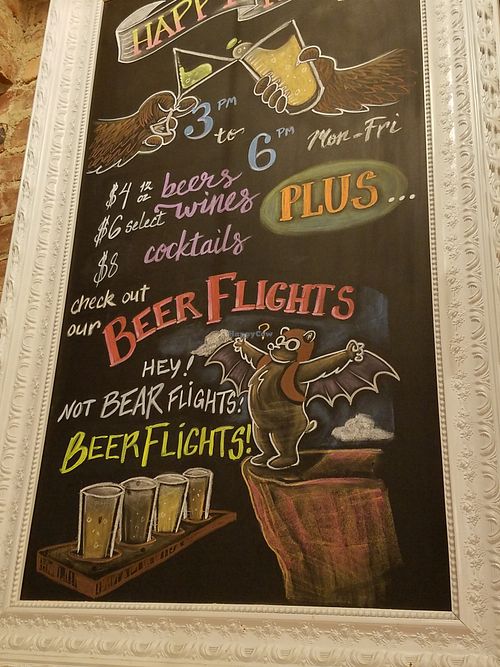 HAPPY
3 PM
to
6 PM
Mon-Fri
$4 12 oz beers
$6 select wines
$8 cocktails
PLUS...
check out
our BEER FLIGHTS
?
HEY!
NOT BEAR FLIGHTS?
BEER FLIGHTS!